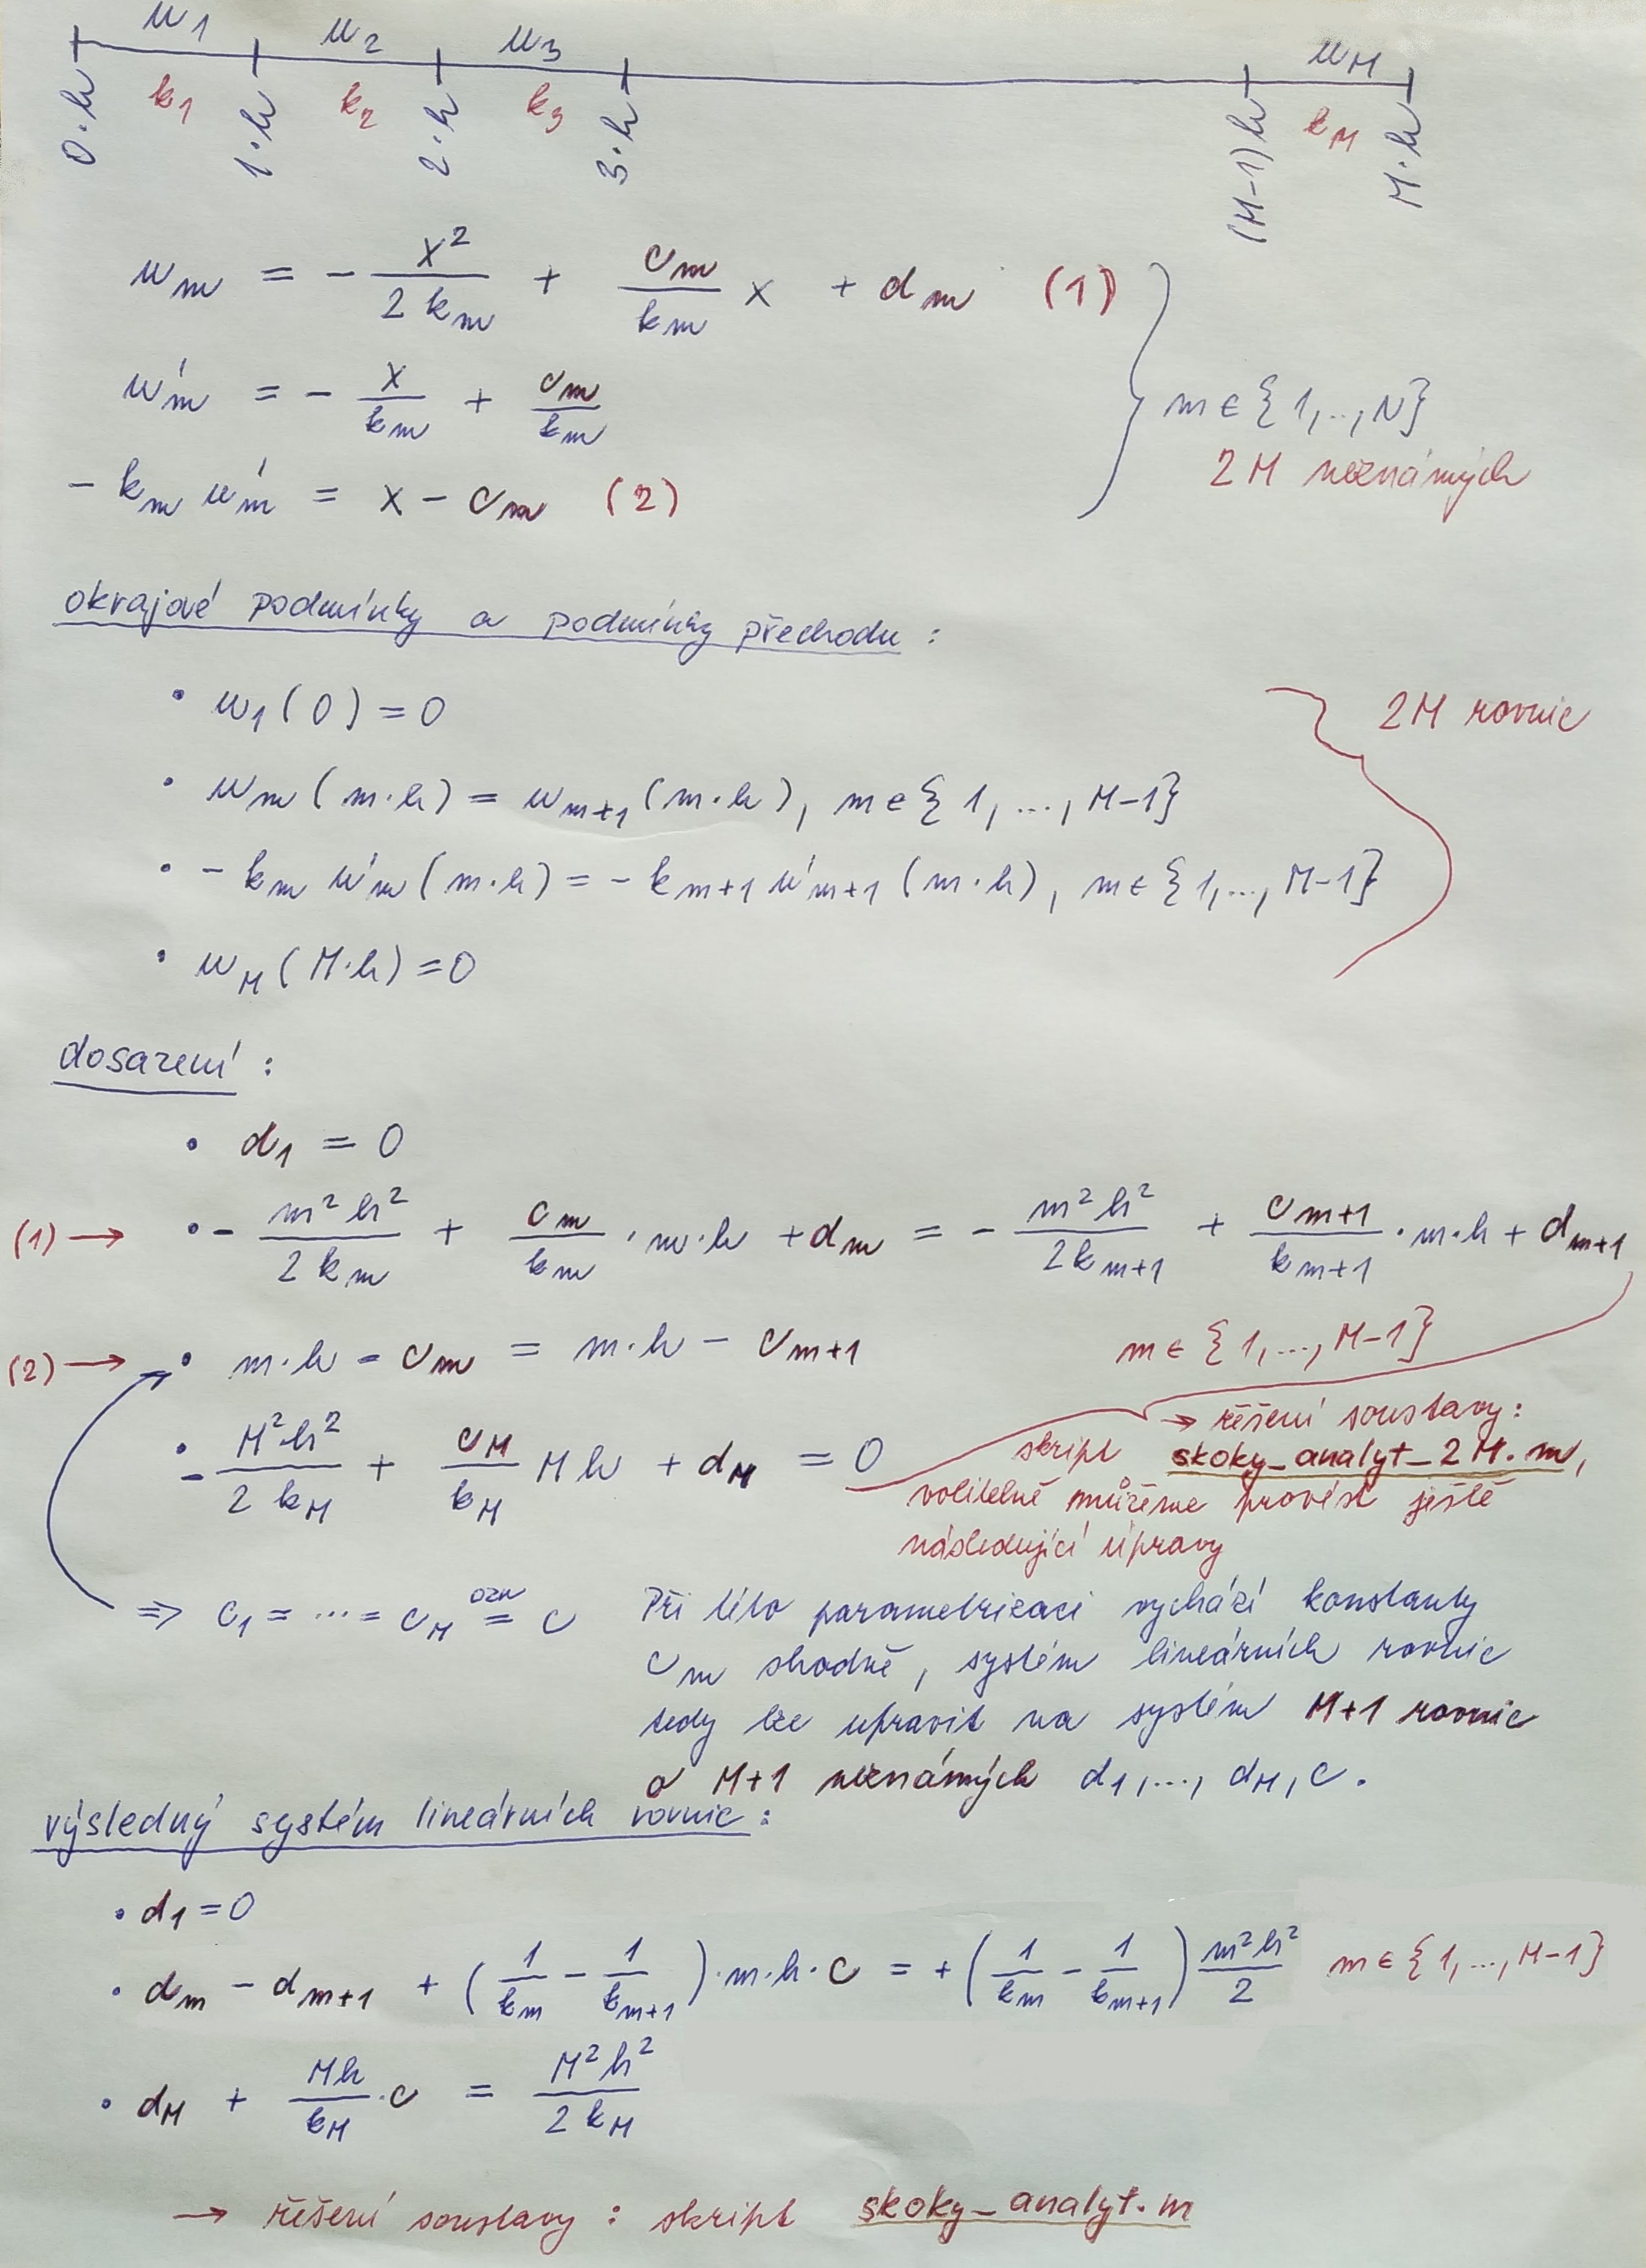 u₁ u₂ u₃ u_M
k₁ k₂ k₃ k_M
0·h 1·h 2·h 3·h (M-1)h M·h
u_m = - x²/(2 k_m) + c_m/k_m x + d_m (1)
u'_m = - x/k_m + c_m/k_m
m ∈ {1,..,N}
2M neznámých
- k_m u'_m = x - c_m (2)
okrajové podmínky a podmínky přechodu :
• u₁(0) = 0
2M rovnic
• u_m(m·h) = u_{m+1}(m·h), m ∈ {1, ..., M-1}
• - k_m u'_m(m·h) = - k_{m+1} u'_{m+1}(m·h), m ∈ {1,..., M-1}
• u_M(M·h) = 0
dosazení :
• d₁ = 0
(1) → • - m²h²/(2 k_m) + c_m/k_m · m·h + d_m = - m²h²/(2k_{m+1}) + c_{m+1}/k_{m+1} · m·h + d_{m+1}
(2) → • m·h - c_m = m·h - c_{m+1} m ∈ {1,..., M-1}
• - M²h²/(2 k_M) + c_M/k_M Mh + d_M = 0
→ řešení soustavy:
skript skoky_analyt_2M.m,
volitelně můžeme provést ještě
následující úpravy
⇒ c₁ = ... = c_M =^{ozn} c
Při této parametrizaci vychází konstanty
c_m shodně, systém lineárních rovnic
tedy lze upravit na systém M+1 rovnic
o M+1 neznámých d₁,..., d_M, c.
výsledný systém lineárních rovnic :
• d₁ = 0
• d_m - d_{m+1} + (1/k_m - 1/k_{m+1})·m·h·c = + (1/k_m - 1/k_{m+1}) m²h²/2 m ∈ {1,..., M-1}
• d_M + Mh/k_M · c = M²h²/(2 k_M)
→ řešení soustavy : skript skoky_analyt.m